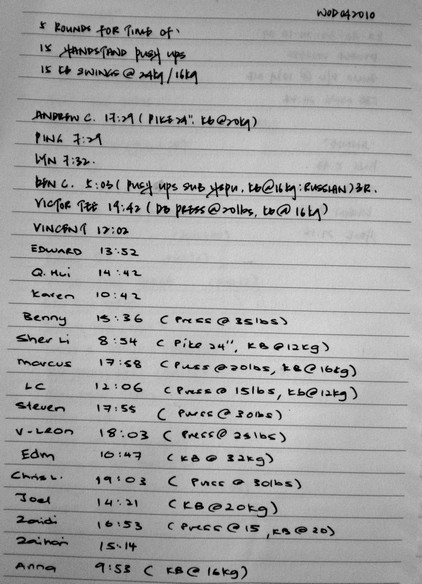 WOD 042010
5 ROUNDS FOR TIME OF:
15 HANDSTAND PUSH UPS
15 KB SWINGS @ 24kg/16kg
ANDREW C. 17:29 (PIKE 24". KB@20kg)
PING 7:29
LYN 7:32.
BEN C. 5:05 (PUSH UPS SUB HSPU. KB@16kg:RUSSIAN) 3R.
VICTOR TEE 19:42 (DB PRESS@20lbs, KB@16kg)
VINCENT 12:02
EDWARD 13:52
Q. Hui 14:42
Karen 10:42
Benny 15:36 (Press @ 35lbs)
Sher Li 8:54 (Pike 24", KB@12kg)
Marcus 17:58 (Press @ 20lbs, KB@16kg)
LC 12:06 (Press @ 15lbs, kb@12kg)
Steven 17:55 (Press @ 30lbs)
V-Leon 18:03 (Press@ 25lbs)
Edm 10:47 (KB@ 32kg)
Chris L. 19:03 (Press @ 30lbs)
Joel 14:21 (KB@20kg)
Zaidi 16:53 (Press@15, KB@20)
15:14
Anna 9:53 (KB@ 16kg)